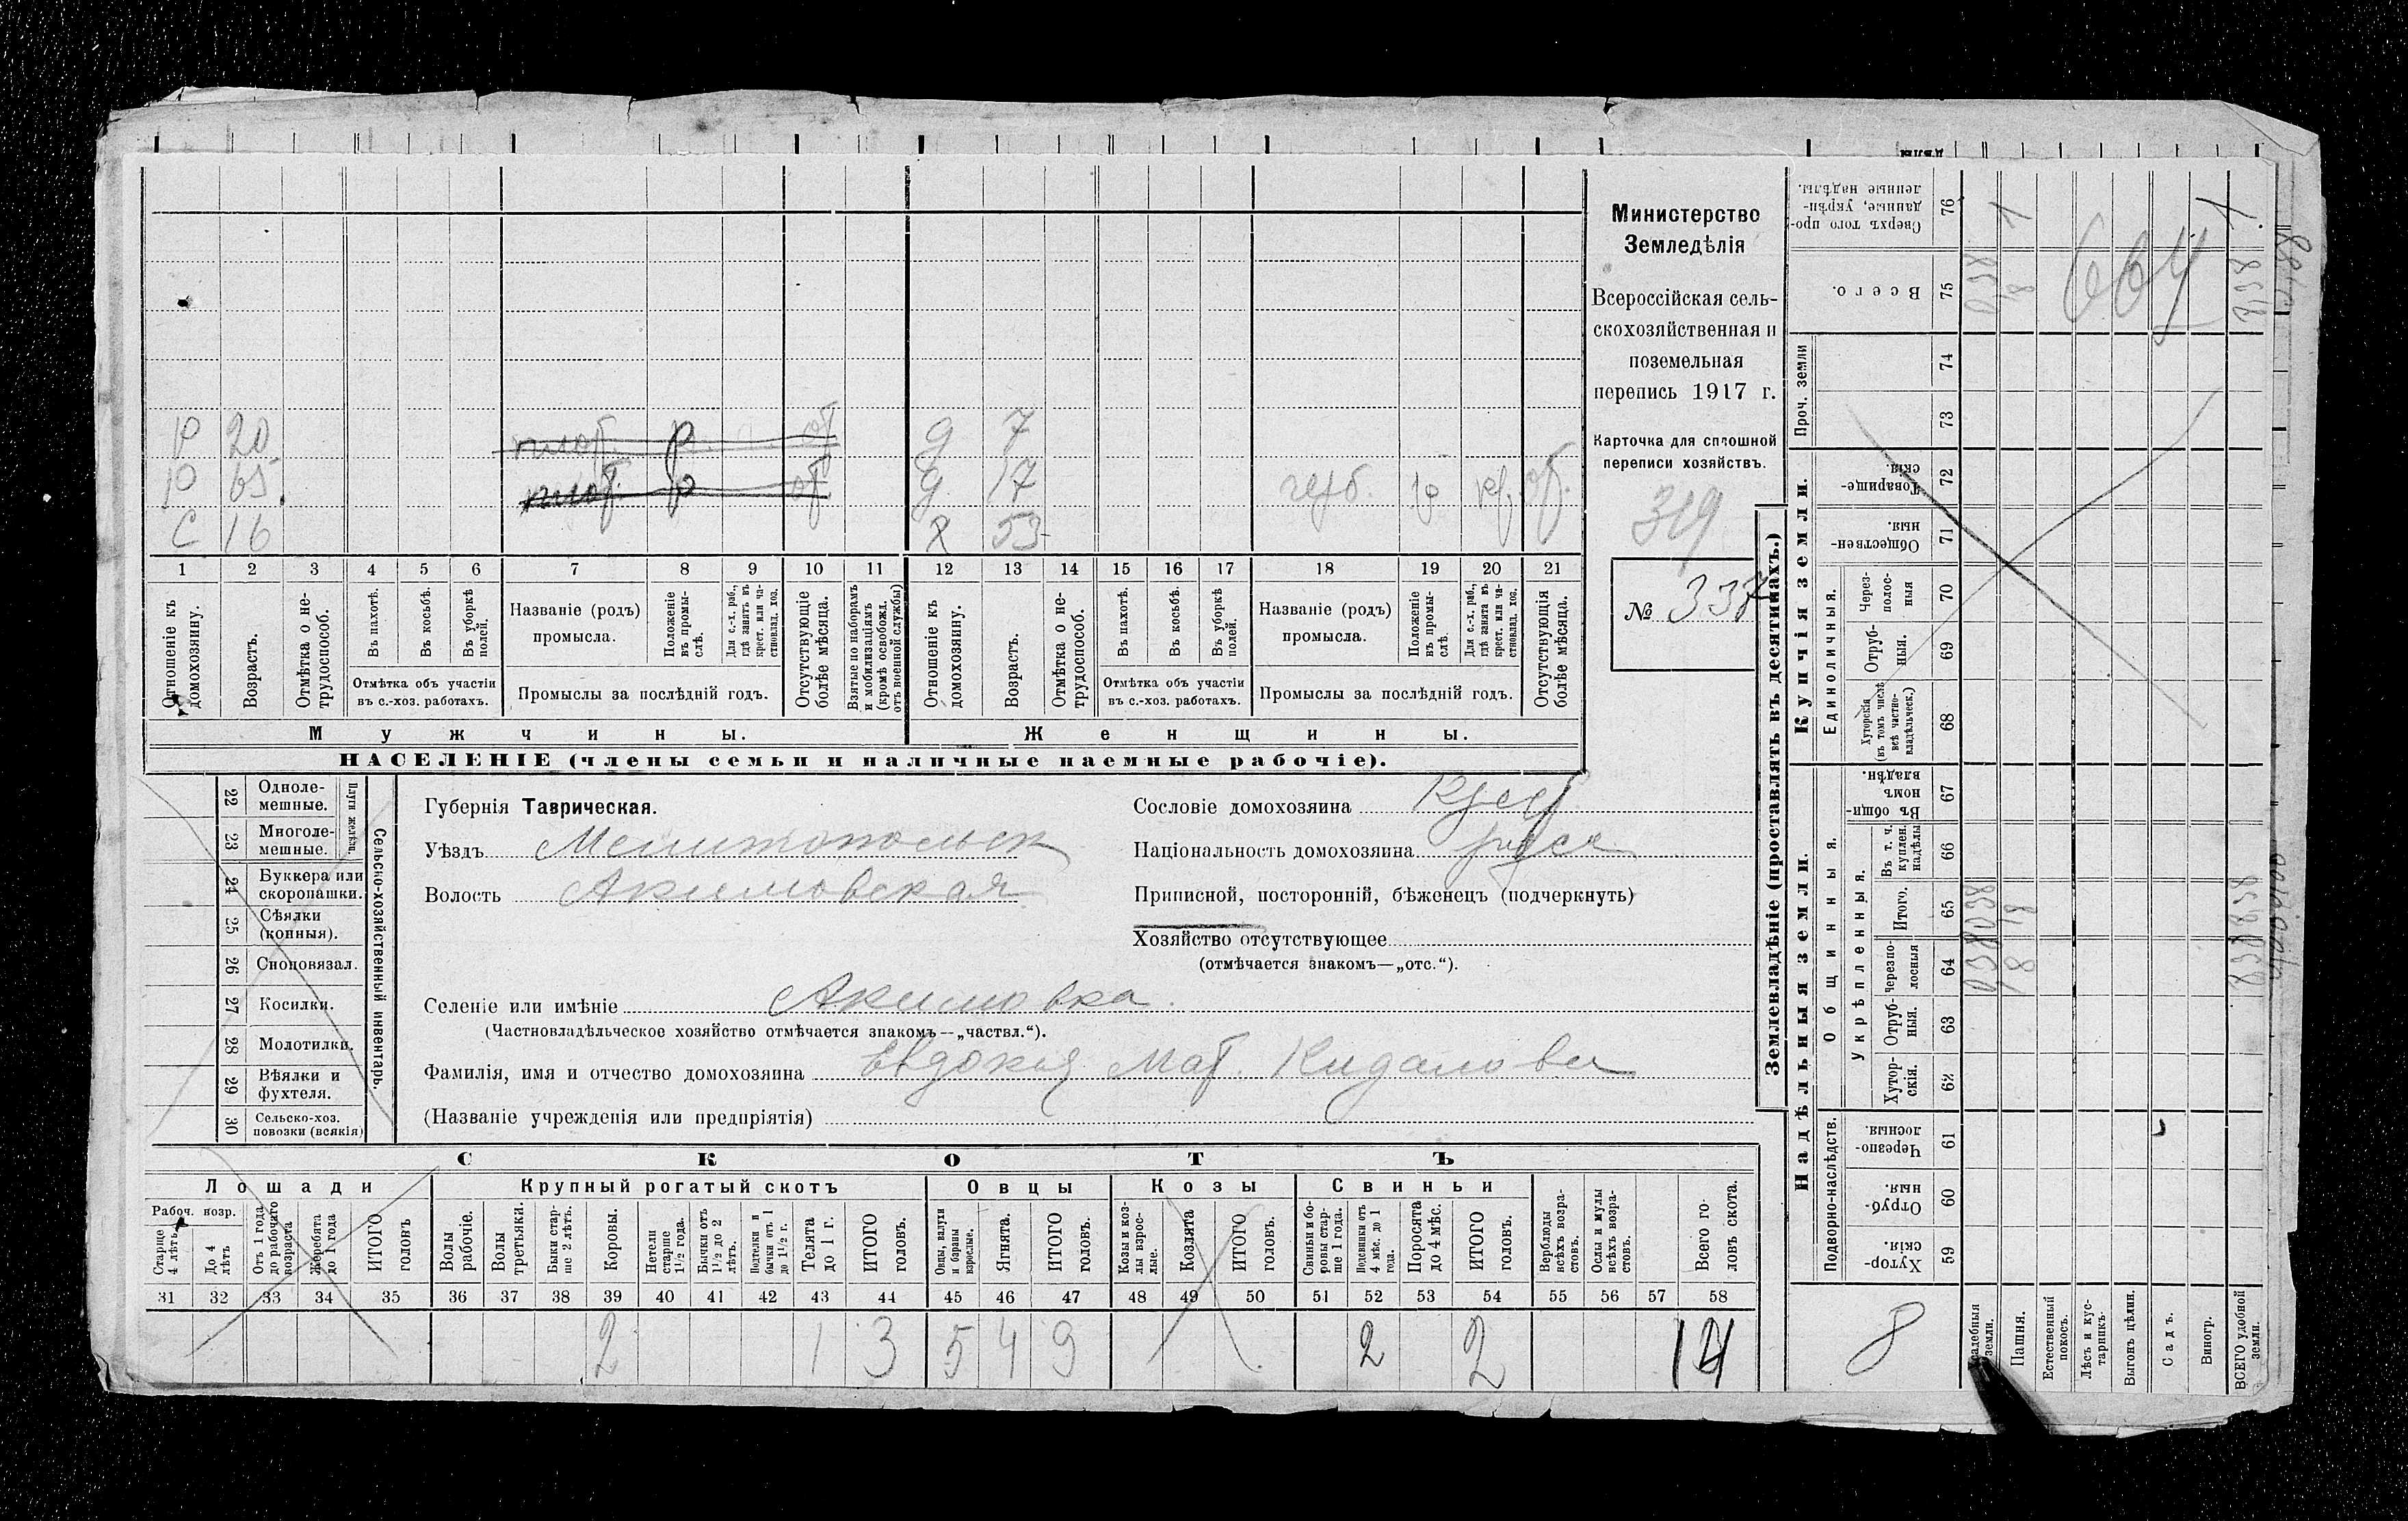 Министерство
Земледѣлія
Всероссійская сель-
скохозяйственная и
поземельная
перепись 1917 г.
Карточка для сплошной
переписи хозяйствъ.
319
№ 337
Р 20
Р 65
С 16
плот. р от
плот. р от
д 7
д 17
х 53
1 2 3 4 5 6 7 8 9 10 11 12 13 14 15 16 17 18 19 20 21
Отношеніе къ домохозяину.
Возрастъ.
Отмѣтка о не-трудоспособ.
Въ пахотѣ.
Въ косьбѣ.
Въ уборкѣ полей.
Отмѣтка объ участіи въ с.-хоз. работахъ.
Названіе (родъ) промысла.
Положеніе въ промы-слѣ.
Для с.-х. раб., гдѣ занятъ въ крест. или ча-стновлад. хоз.
Промыслы за послѣдній годъ.
Отсутствующіе болѣе мѣсяца.
Взятые по наборамъ и мобилизаціямъ (кромѣ освобожд. отъ военной службы)
Отношеніе къ домохозяину.
Возрастъ.
Отмѣтка о не-трудоспособ.
Въ пахотѣ.
Въ косьбѣ.
Въ уборкѣ полей.
Отмѣтка объ участіи въ с.-хоз. работахъ.
Названіе (родъ) промысла.
Положеніе въ промы-слѣ.
Для с.-х. раб., гдѣ занята въ крест. или ча-стновлад. хоз.
Промыслы за послѣдній годъ.
Отсутствующія болѣе мѣсяца.
Мужчины.
Женщины.
НАСЕЛЕНІЕ (члены семьи и наличные наемные рабочіе).
22 Одноле-мешные.
23 Многоле-мешные.
Плуги желѣзн.
24 Буккера или скоропашки.
25 Сѣялки (конныя).
26 Сноповязал.
27 Косилки.
28 Молотилки.
29 Вѣялки и фухтеля.
30 Сельско-хоз. повозки (всякія)
Сельско-хозяйственный инвентарь.
Губернія Таврическая.
Уѣздъ Мелитопольск
Волость Акимовская
Сословіе домохозяина Крест
Національность домохозяина русск
Приписной, посторонній, бѣженецъ (подчеркнуть)
Хозяйство отсутствующее
(отмѣчается знакомъ—„отс.“).
Селеніе или имѣніе Акимовка.
(Частновладѣльческое хозяйство отмѣчается знакомъ—„частвл.“).
Фамилія, имя и отчество домохозяина Евдокия Мат. Кидалова
(Названіе учрежденія или предпріятія)
СКОТЪ
Лошади
Крупный рогатый скотъ
Овцы
Козы
Свиньи
Рабоч. возр.
Старше 4 лѣтъ
До 4 лѣтъ
Отъ 1 года до рабочаго возраста
Жеребята до 1 года
ИТОГО головъ
Волы рабочіе.
Волы третьяки.
Быки стар-ше 2 лѣтъ.
Коровы.
Нетели старше 1½ года.
Бычки отъ 1½ до 2 лѣтъ.
Подтелки и бычки отъ 1 до 1½ г.
Телята до 1 г.
ИТОГО головъ.
Овцы, валухи и бараны взрослые.
Ягнята.
ИТОГО головъ.
Козы и коз-лы взрос-лые.
Козлята
ИТОГО головъ.
Свиньи и бо-ровы стар-ше 1 года.
Подсвинки отъ 4 мѣс. до 1 года.
Поросята до 4 мѣс.
ИТОГО головъ.
Верблюды всѣхъ возра-стовъ.
Ослы и мулы всѣхъ возра-стовъ.
Всего го-ловъ скота.
31 32 33 34 35 36 37 38 39 40 41 42 43 44 45 46 47 48 49 50 51 52 53 54 55 56 57 58
2 1 3 5 4 9 2 2 14
Землевладѣніе (проставлять въ десятинахъ.)
Надѣльныя земли.
Купчія земли.
Сверхъ того про-данные, укрѣп-ленные надѣлы. 76
Всего. 75
Проч. земли
74
73
Товарище-скія. 72
Обществен-ныя. 71
Единоличныя.
Через-полос-ныя 70
Отруб-ныя. 69
Хуторскія (въ томъ числѣ всѣ частно-владѣльческ.) 68
Общинныя.
Въ общи-номъ владѣн. 67
Укрѣпленныя.
Въ т. ч. куплен. надѣлы 66
Итого. 65
Черезпо-лосныя 64
Отруб-ныя. 63
Хутор-скія. 62
Подворно-наслѣдств.
Черезпо-лосныя. 61
Отруб-ныя. 60
Хутор-скія. 59
8
Усадебныя земли.
Пашня.
Естественный покосъ.
Лѣсъ и кус-тарникъ.
Выгонъ цѣлин.
Садъ.
Виногр.
ВСЕГО удобной земли.